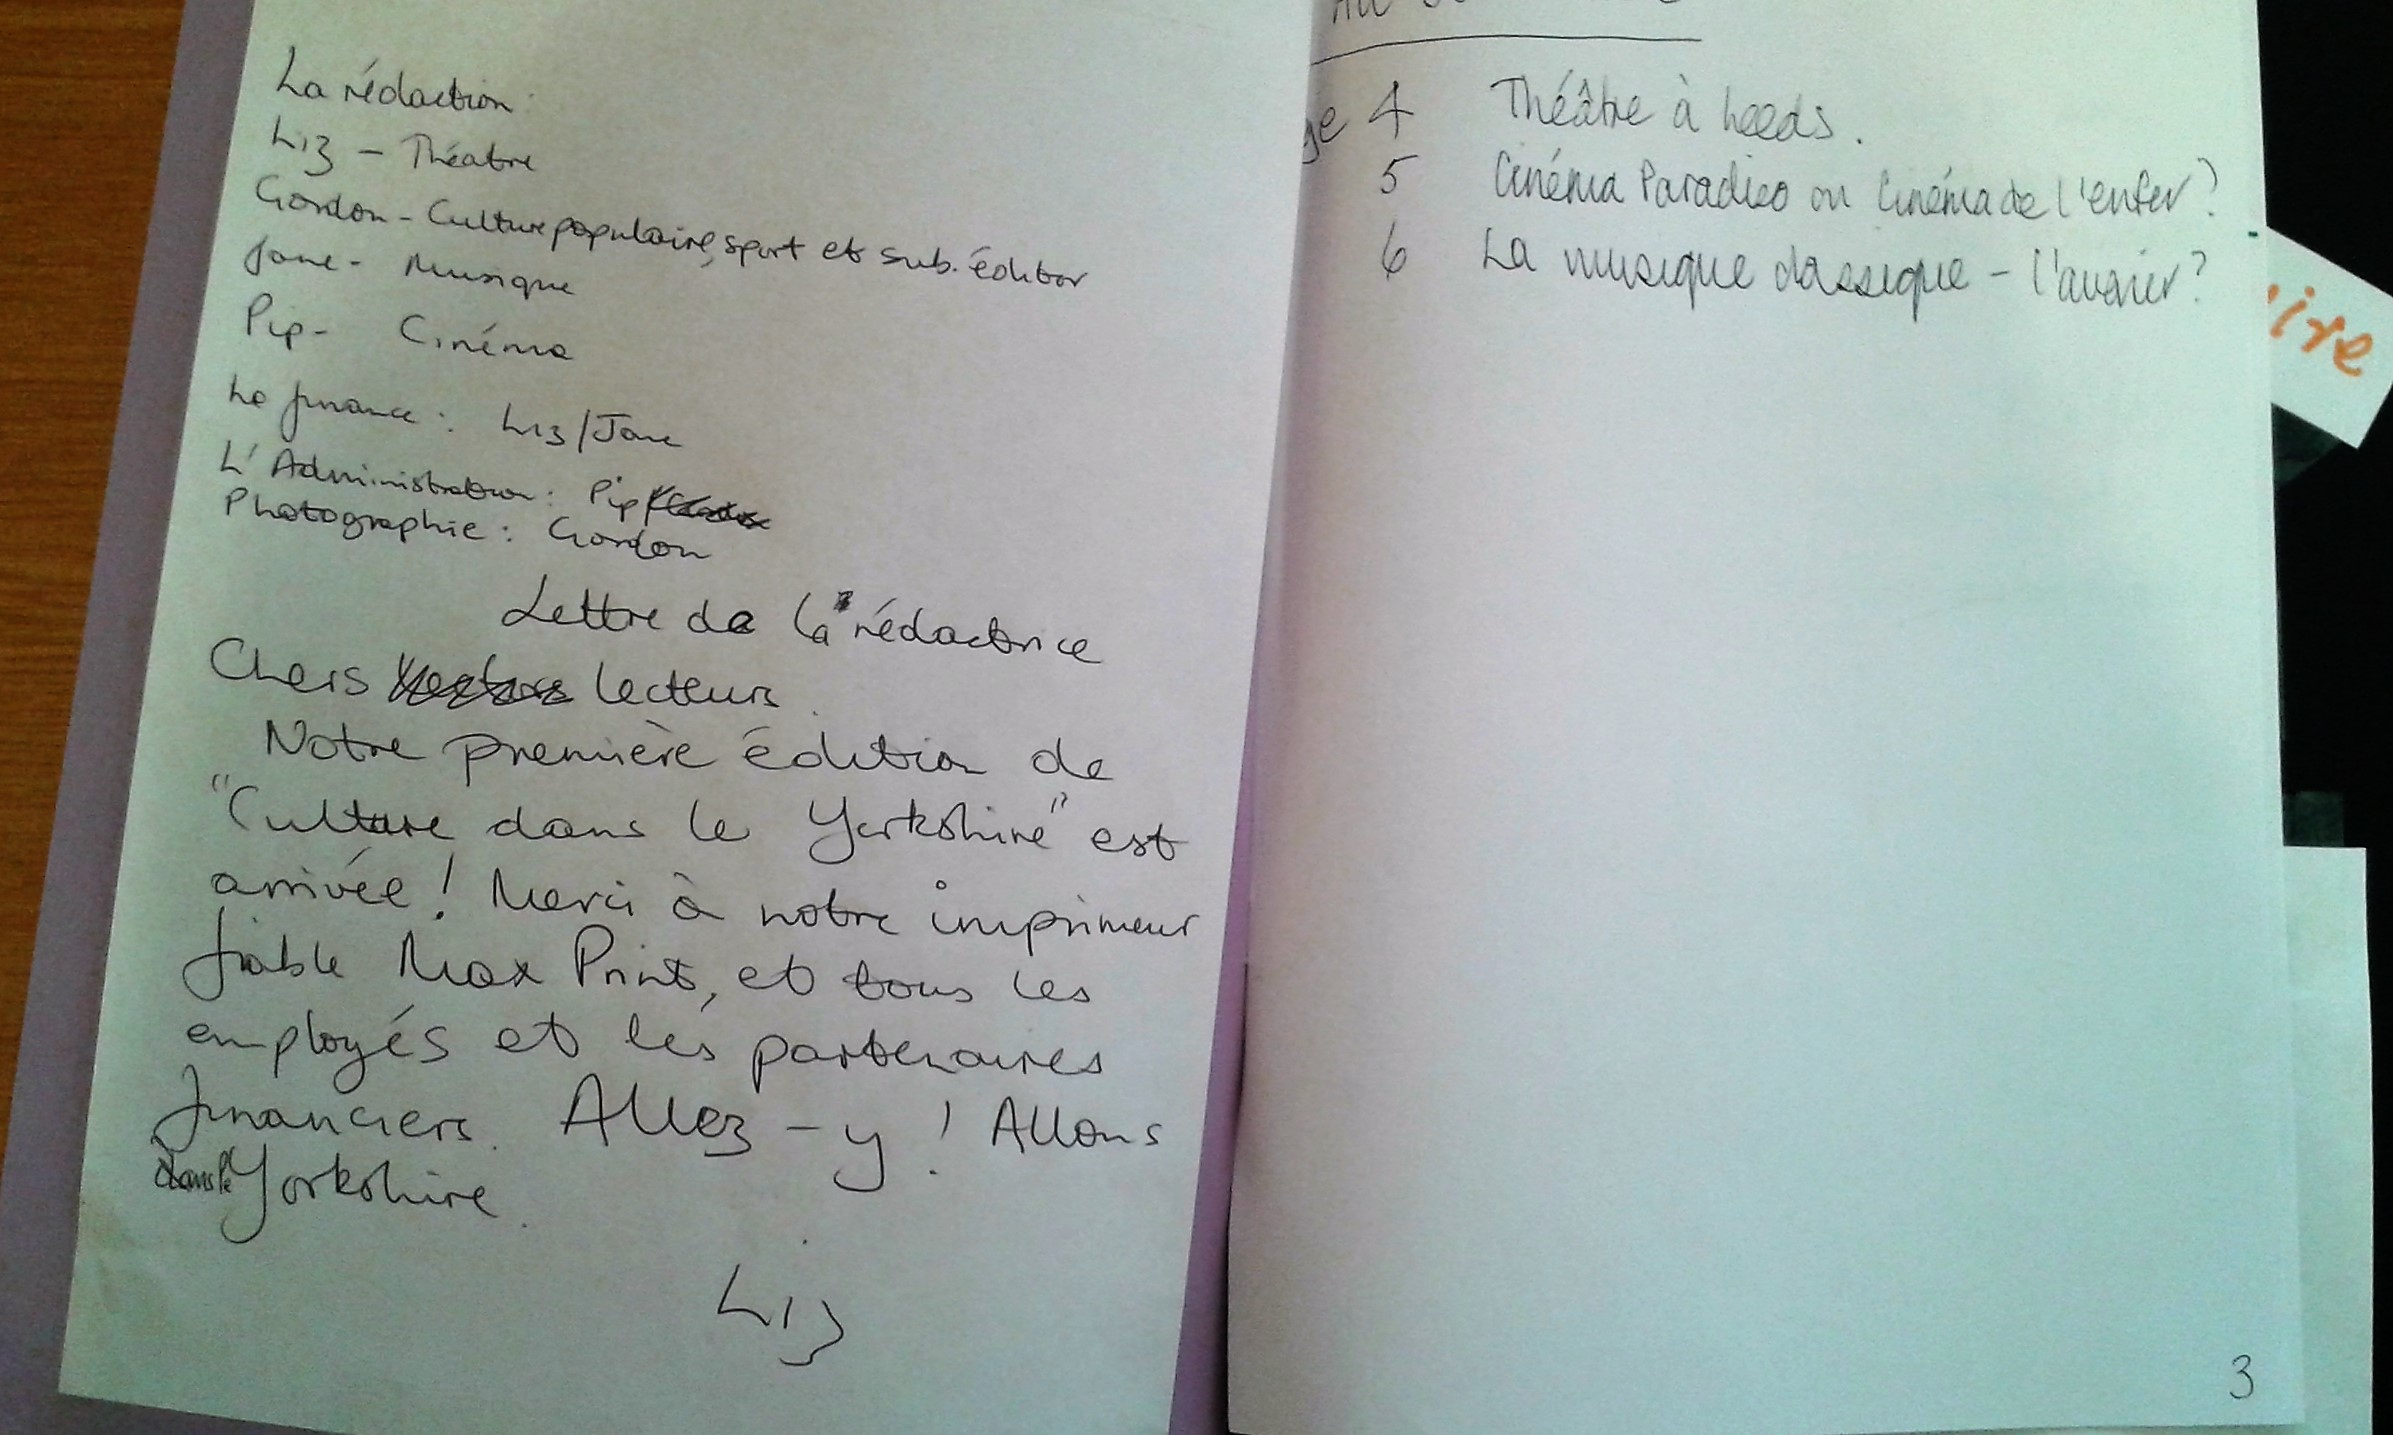 La rédaction:
Liz - Théatre
Gordon - Culture populaire, sport et sub. éditor
Jane - Musique
Pip - Cinéma
La finance : Liz/Jane
L'Administration : Pip
Photographie : Gordon
Lettre de la rédactrice
Chers lecteurs
Notre première édition de
"Culture dans le Yorkshire" est
arrivée ! Merci à notre imprimeur
fiable Max Print, et tous les
employés et les partenaires
financiers. Allez-y ! Allons
dans le Yorkshire.
Liz
4 Théâtre à Leeds.
5 Cinéma Paradiso ou Cinéma de l'enfer ?
6 La musique classique - l'avenir ?
3
ire